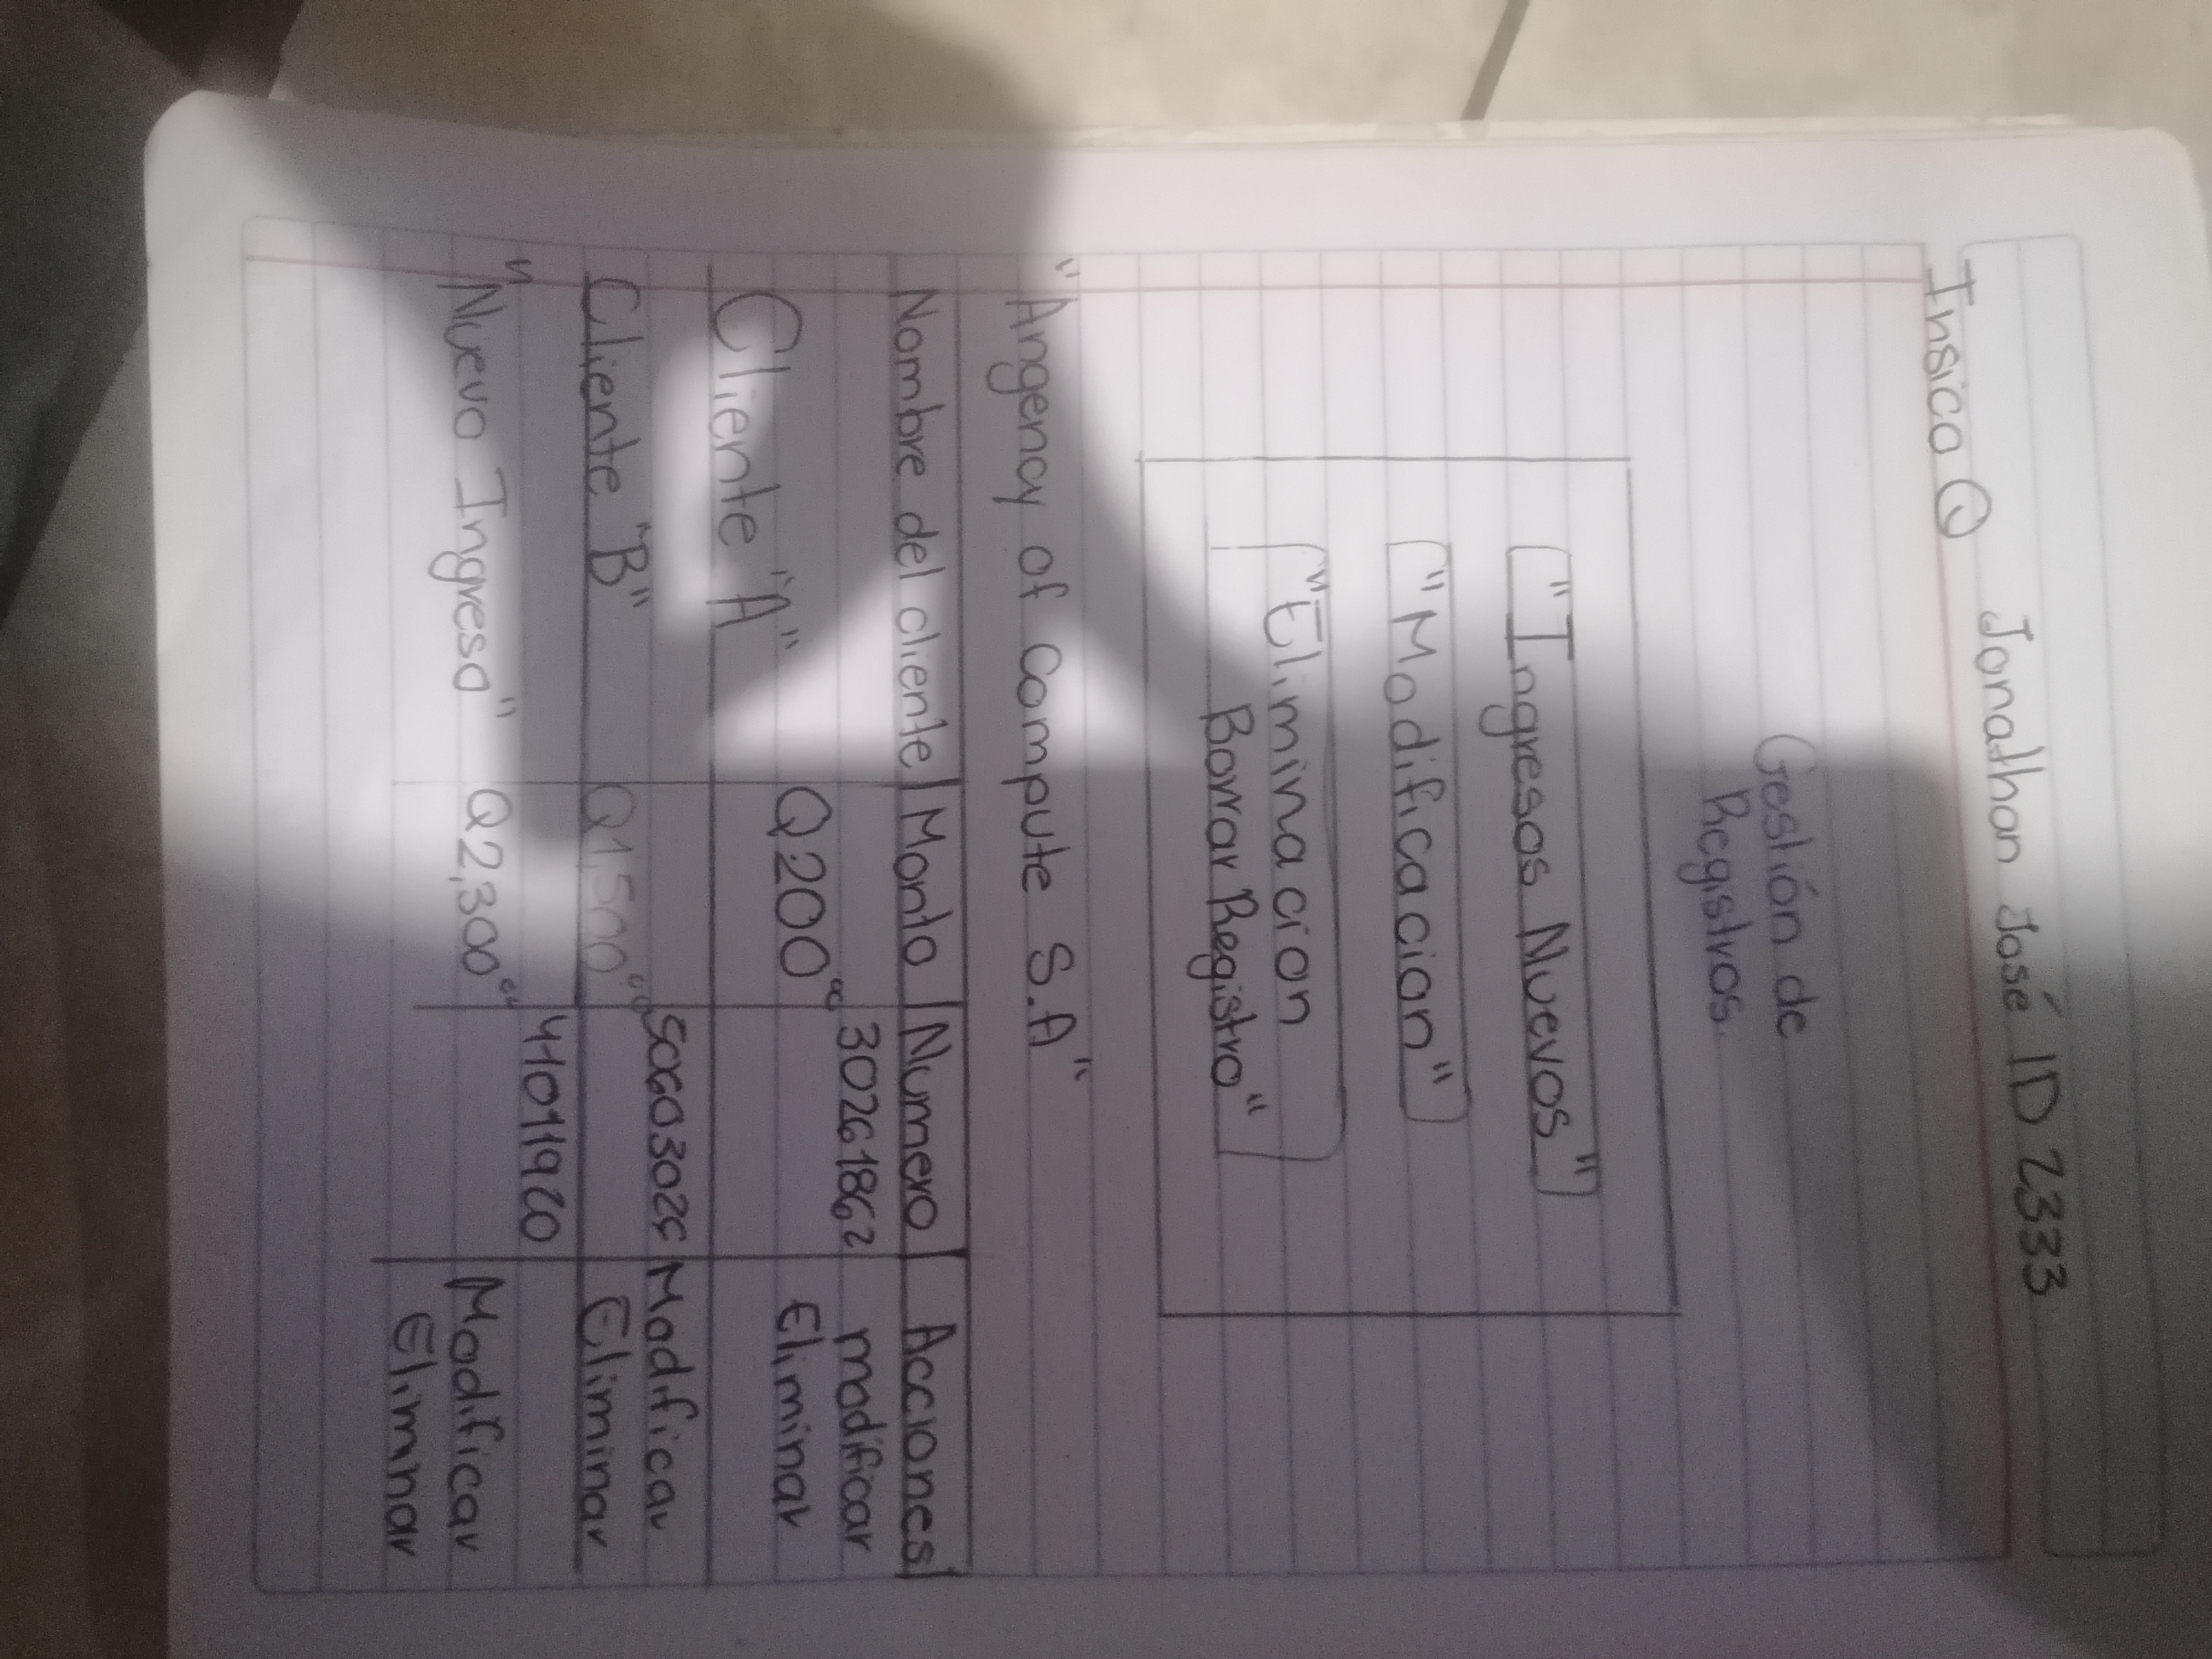 Jonathan José ID 2333
Insico
Gestión de
Registros.
"Ingresos Nuevos"
"Modificacion"
"Eliminacion
Borrar Registro"
"Angency of Compute S.A"
Nombre del cliente | Monto | Numero | Acciones
Cliente "A" Q200 30261862 modificar
Eliminar
Cliente "B" Q1,500 Modificar
Eliminar
"Nuevo Ingreso" Q2,300 41011920 Modificar
Eliminar